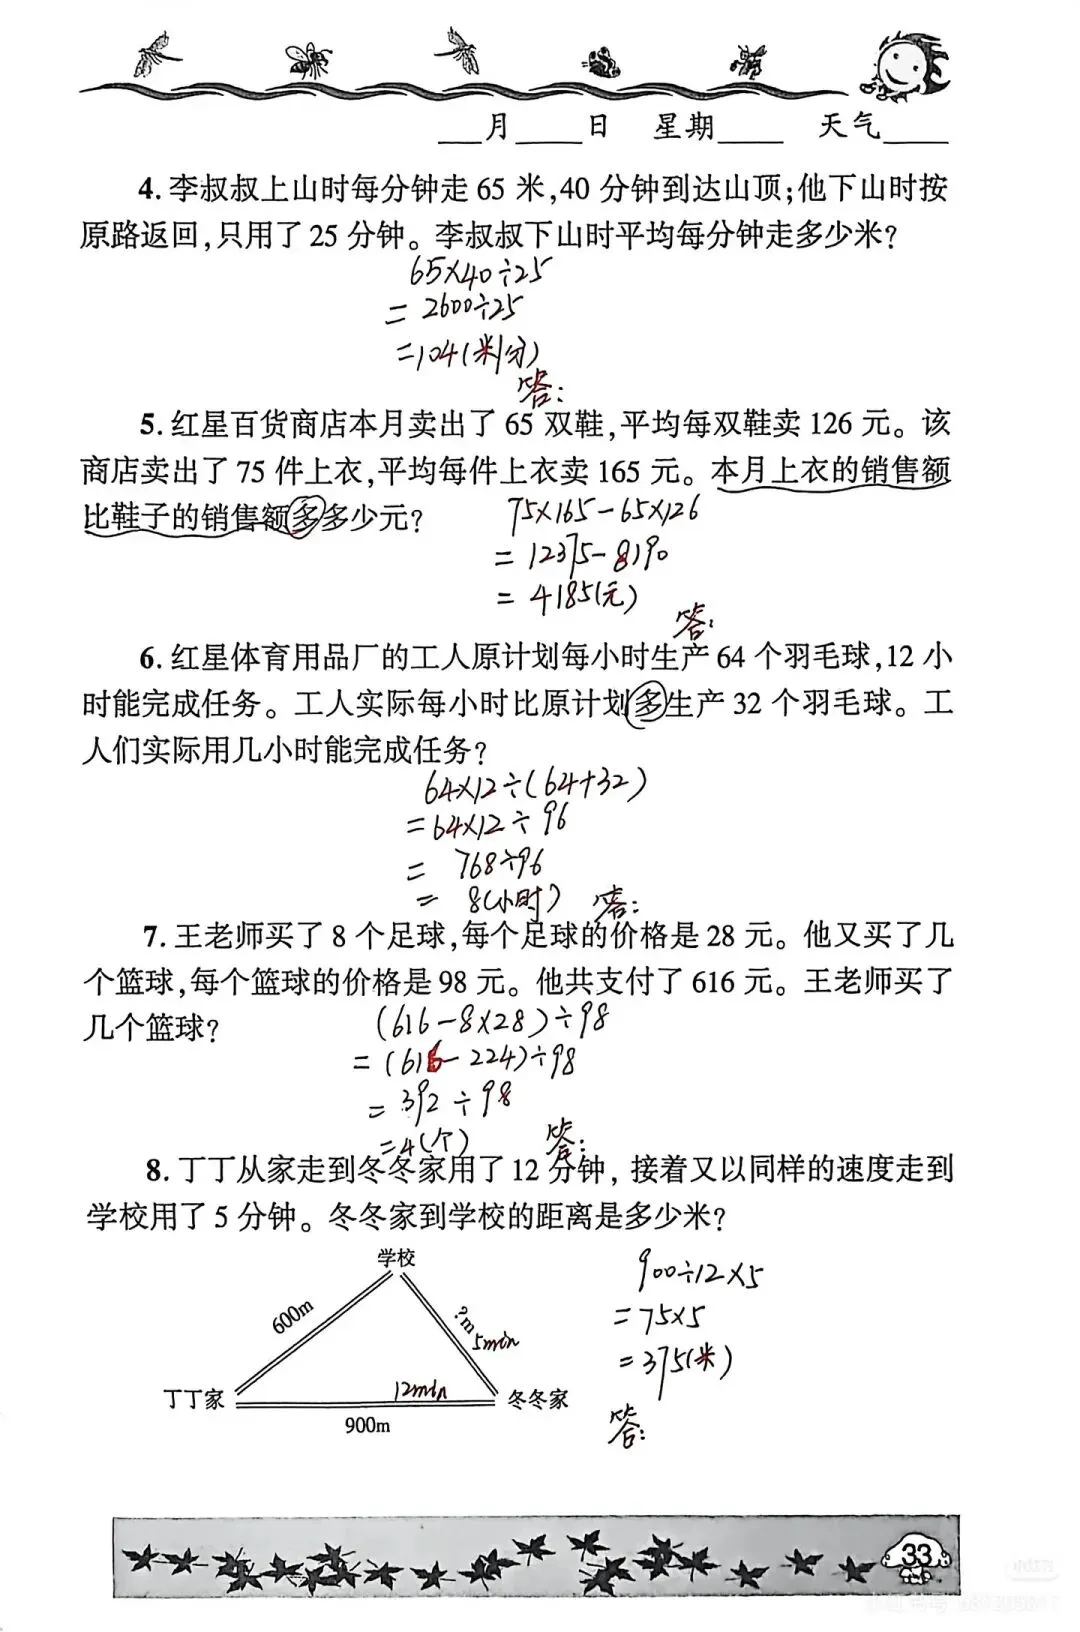 ___月____日 星期____ 天气____
4. 李叔叔上山时每分钟走 65 米,40 分钟到达山顶;他下山时按
原路返回,只用了 25 分钟。李叔叔下山时平均每分钟走多少米?
65×40÷25
= 2600÷25
=104(米/分)
答:
5. 红星百货商店本月卖出了 65 双鞋,平均每双鞋卖 126 元。该
商店卖出了 75 件上衣,平均每件上衣卖 165 元。本月上衣的销售额
比鞋子的销售额多多少元?
75×165-65×126
= 12375-8190
= 4185(元)
答:
6. 红星体育用品厂的工人原计划每小时生产 64 个羽毛球,12 小
时能完成任务。工人实际每小时比原计划多生产 32 个羽毛球。工
人们实际用几小时能完成任务?
64×12÷(64+32)
=64×12÷96
= 768÷96
= 8(小时) 答:
7. 王老师买了 8 个足球,每个足球的价格是 28 元。他又买了几
个篮球,每个篮球的价格是 98 元。他共支付了 616 元。王老师买了
几个篮球?
(616-8×28)÷98
=(616-224)÷98
= 392÷98
=4(个) 答:
8. 丁丁从家走到冬冬家用了 12 分钟,接着又以同样的速度走到
学校用了 5 分钟。冬冬家到学校的距离是多少米?
学校
600m
?m
5min
丁丁家
12min
冬冬家
900m
900÷12×5
=75×5
=375(米)
答:
33
小红书